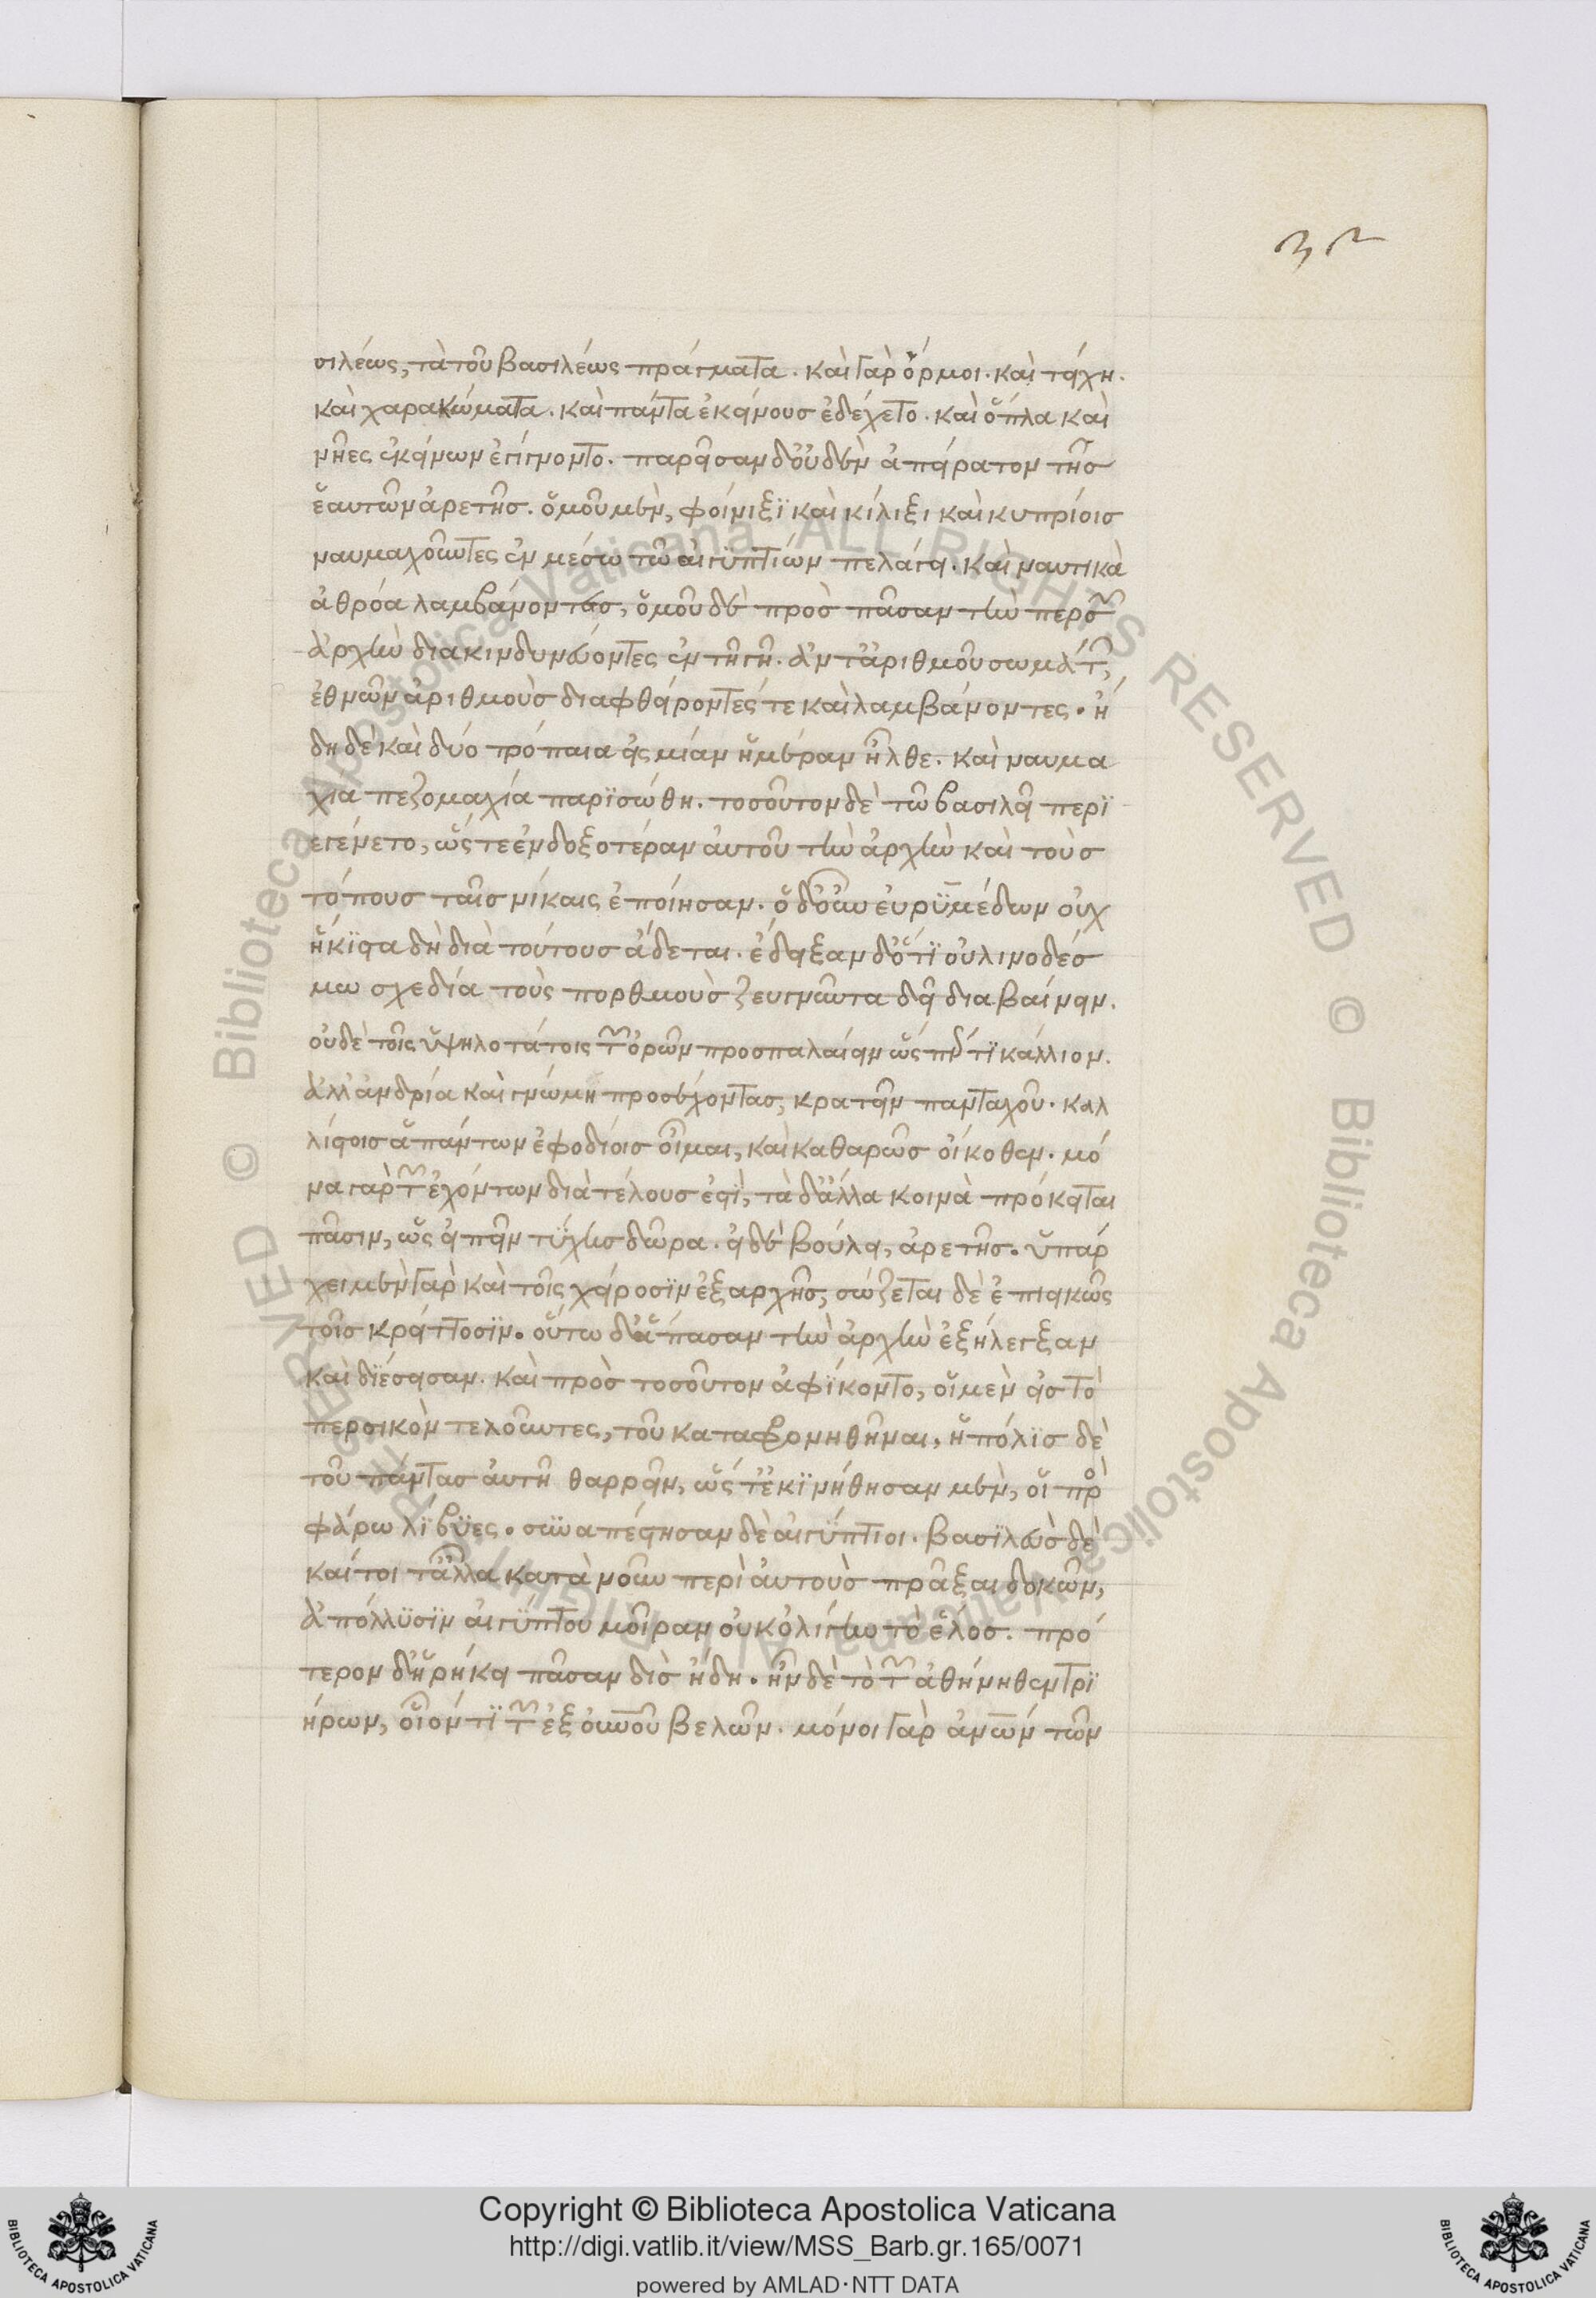 35
σιλέως, τὰ τοῦ βασιλέως πράγματα. καὶ γὰρ ὅρμοι. καὶ τείχη.
καὶ χαρακώματα. καὶ πάντα ἐκείνους ἐδέχετο. καὶ ὅπλα καὶ
νῆες ἐκείνων ἐγίγνοντο. παρεῖσαν δ' οὐδὲν ἀπείρατον τῆς
ἑαυτῶν ἀρετῆς. ὁμοῦ μὲν, φοίνιξϊ καὶ κίλιξι καὶ κυπρίοις
ναυμαχοῦντες ἐν μέσω τῶ αἰγϋπτίων πελάγει. καὶ ναυτικὰ
ἀθρόα λαμβάνοντες, ὁμοῦ δὲ πρὸς πᾶσαν τὴν περσῶν
ἀρχὴν διακινδυνεύοντες ἐν τῆ γῆ. ἀντ' ἀριθμοῦ σωμάτων,
ἐθνῶν ἀριθμοὺς διαφθείροντές τε καὶ λαμβάνοντες. ἤ
δη δὲ καὶ δύο τρόπαια εἰς μίαν ἡμέραν ἦλθε. καὶ ναυμα
χία πεζομαχία παρϊσώθη. τοσοῦτον δὲ τῶ βασιλεῖ περϊ
εγένετο, ὥς τε ἐνδοξοτέραν αὐτοῦ τὴν ἀρχὴν καὶ τοὺς
τόπους ταῖς νίκαις ἐποίησαν. ὁ δ' οὖν εὐρϋμέδων οὐχ
ἥκϊστα δὴ διὰ τούτους ἄδεται. ἔδειξαν δ' ὅτϊ οὐ λινοδές
μω σχεδία τοὺς πορθμοὺς ζευγνῦντα δεῖ διαβαίνειν.
οὐδὲ τοῖς ὑψηλοτάτοις τῶν ὀρῶν προσπαλαίειν ὥς πέρ τϊ κάλλιον.
ἀλλ' ἀνδρία καὶ γνώμη προσέχοντας, κρατεῖν πανταχοῦ. καλ
λίστοις ἁπάντων ἐφοδίοις οἶμαι, καὶ καθαρῶς οἴκοθεν. μό
να γὰρ τῶν ἐχόντων διὰ τέλους ἐστϊ, τὰ δ' ἄλλα κοινὰ πρόκειται
πᾶσιν, ὡς εἰπεῖν τύχης δῶρα. εἰ δὲ βούλει, ἀρετῆς. ὑπάρ
χει μὲν γὰρ καὶ τοῖς χείροσϊν ἐξαρχῆς, σώζεται δὲ ἐπιεικῶς
τοῖς κρείττοσϊν. οὕτω δ' ἅπασαν τὴν ἀρχὴν ἐξήλεγξαν
καὶ δϊέσεισαν. καὶ πρὸς τοσοῦτον ἀφίκοντο, οἱ μὲν εἰς τὸ
περσικὸν τελοῦντες, τοῦ καταφρονηθῆναι, ἡ πόλϊς δὲ
τοῦ πάντας αὐτῆ θαρρεῖν, ὥς τ' ἐκϊνήθησαν μὲν, οἱ πρὸ
φάρω λίβϋες. συναπέστησαν δὲ αἰγύπτιοι. βασϊλεὺς δὲ
καίτοι τἆλλα κατὰ νοῦν περὶ αὐτοὺς πρᾶξαι δοκῶν,
ἀπόλλϋσϊν αἰγύπτου μοῖραν οὐκ ὀλίγην τὸ ἕλος. πρό
τερον δ' ἡρήκει πᾶσαν δὶς ἤδη. ἦν δὲ τὸ τῶν ἀθήνηθεν τρϊ
ήρων, οἷόν τϊ τῶν ἐξ οὐρανοῦ βελῶν. μόνοι γὰρ ἀνθρώπων τῶν
Copyright © Biblioteca Apostolica Vaticana
http://digi.vatlib.it/view/MSS_Barb.gr.165/0071
powered by AMLAD·NTT DATA